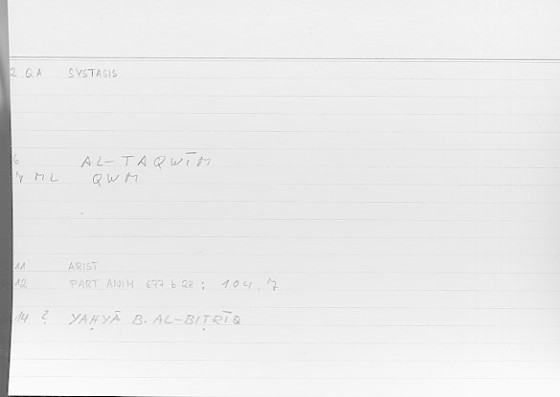 2 QA SYSTASIS
6 AL-TAQWĪM
7 ML QWM
11 ARIST
12 PART ANIM 677 b 22 : 104.7
14 ? YAḤYĀ B. AL-BIṬRĪQ